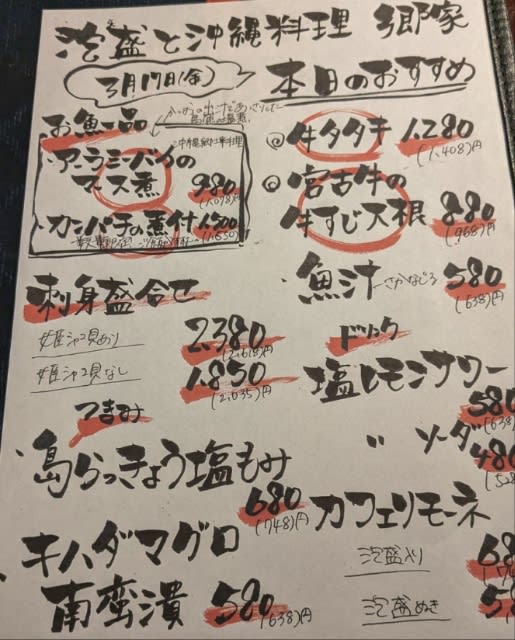 泡盛と沖縄料理 郷家
3月17日(金)
本日のおすすめ
お魚一品
沖縄郷土料理
アーラミーバイの
マース煮 980
(1,078)円
カンパチの煮付 1,500
(1,650)円
刺身盛合せ
姫シャコ貝あり 2,380
(2,618)円
姫シャコ貝なし 1,850
(2,035)円
つまみ
島らっきょう塩もみ
680
(748)円
キハダマグロ
南蛮漬 580
(638)円
牛タタキ 1,280
(1,408)円
宮古牛の
牛すじ大根 880
(968)円
魚汁 さかなじる 580
(638)円
ドリンク
塩レモンサワー
580
(638)
〃 ソーダ
480
(528
カフェリモーネ
泡盛入り 68
泡盛ぬき 58